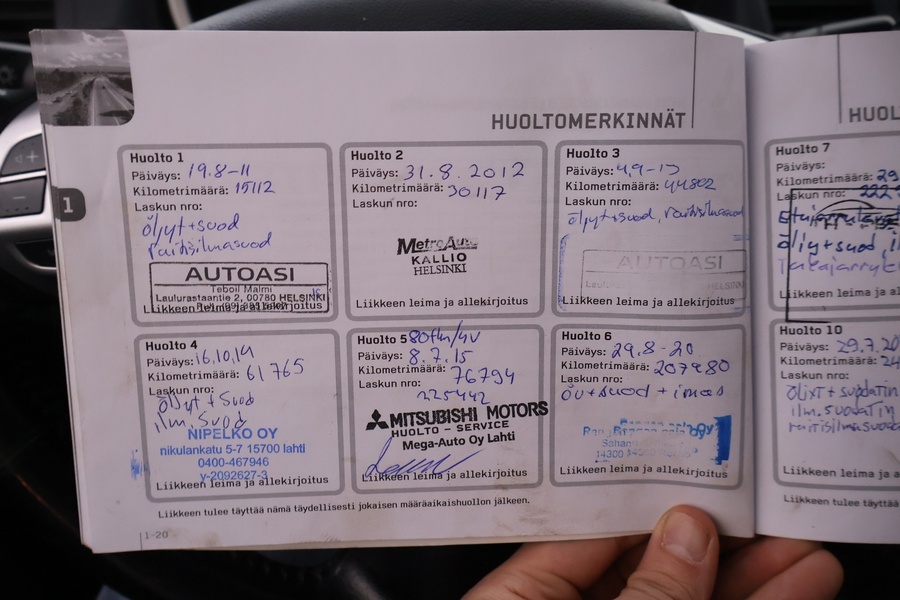 HUOLTOMERKINNÄT
Huolto 1
Päiväys: 19.8-11
Kilometrimäärä: 15112
Laskun nro:
öljyt+suod
raitisilmasuod
AUTOASI
Teboil Malmi
Laulurastaantie 2, 00780 HELSINKI
Liikkeen leima ja allekirjoitus
Huolto 2
Päiväys: 31.8.2012
Kilometrimäärä: 30117
Laskun nro:
MetroAuto
KALLIO
HELSINKI
Liikkeen leima ja allekirjoitus
Huolto 3
Päiväys: 4.9-13
Kilometrimäärä: 44802
Laskun nro:
öljyt+suod, raitisilmasuod
AUTOASI
Liikkeen leima ja allekirjoitus
Huolto 4
Päiväys: 16.10.14
Kilometrimäärä: 61765
Laskun nro:
öljyt+suod
ilm.suod
NIPELKO OY
nikulankatu 5-7 15700 lahti
0400-467946
y-2092627-3
Liikkeen leima ja allekirjoitus
Huolto 5 80tkm/4v
Päiväys: 8.7.15
Kilometrimäärä: 76794
Laskun nro: 225442
MITSUBISHI MOTORS
HUOLTO - SERVICE
Mega-Auto Oy Lahti
Liikkeen leima ja allekirjoitus
Huolto 6
Päiväys: 29.8-20
Kilometrimäärä: 207980
Laskun nro:
öv+suod + imas
14300
Liikkeen leima ja allekirjoitus
Liikkeen tulee täyttää nämä täydellisesti jokaisen määräaikaishuollon jälkeen.
1-20
1
HUOL
Huolto 7
Päiväys:
Kilometrimäärä: 29
Laskun nro: 222
öljy+suod,
Takajarru
Liikkeen leima ja al
Huolto 10
Päiväys: 29.7.20
Kilometrimäärä: 24
Laskun nro:
Ölixt + suodatin
ilm.suodatin
raitisilmasuoda
Liikkeen leima ja al
Liikkeen tulee täyttää